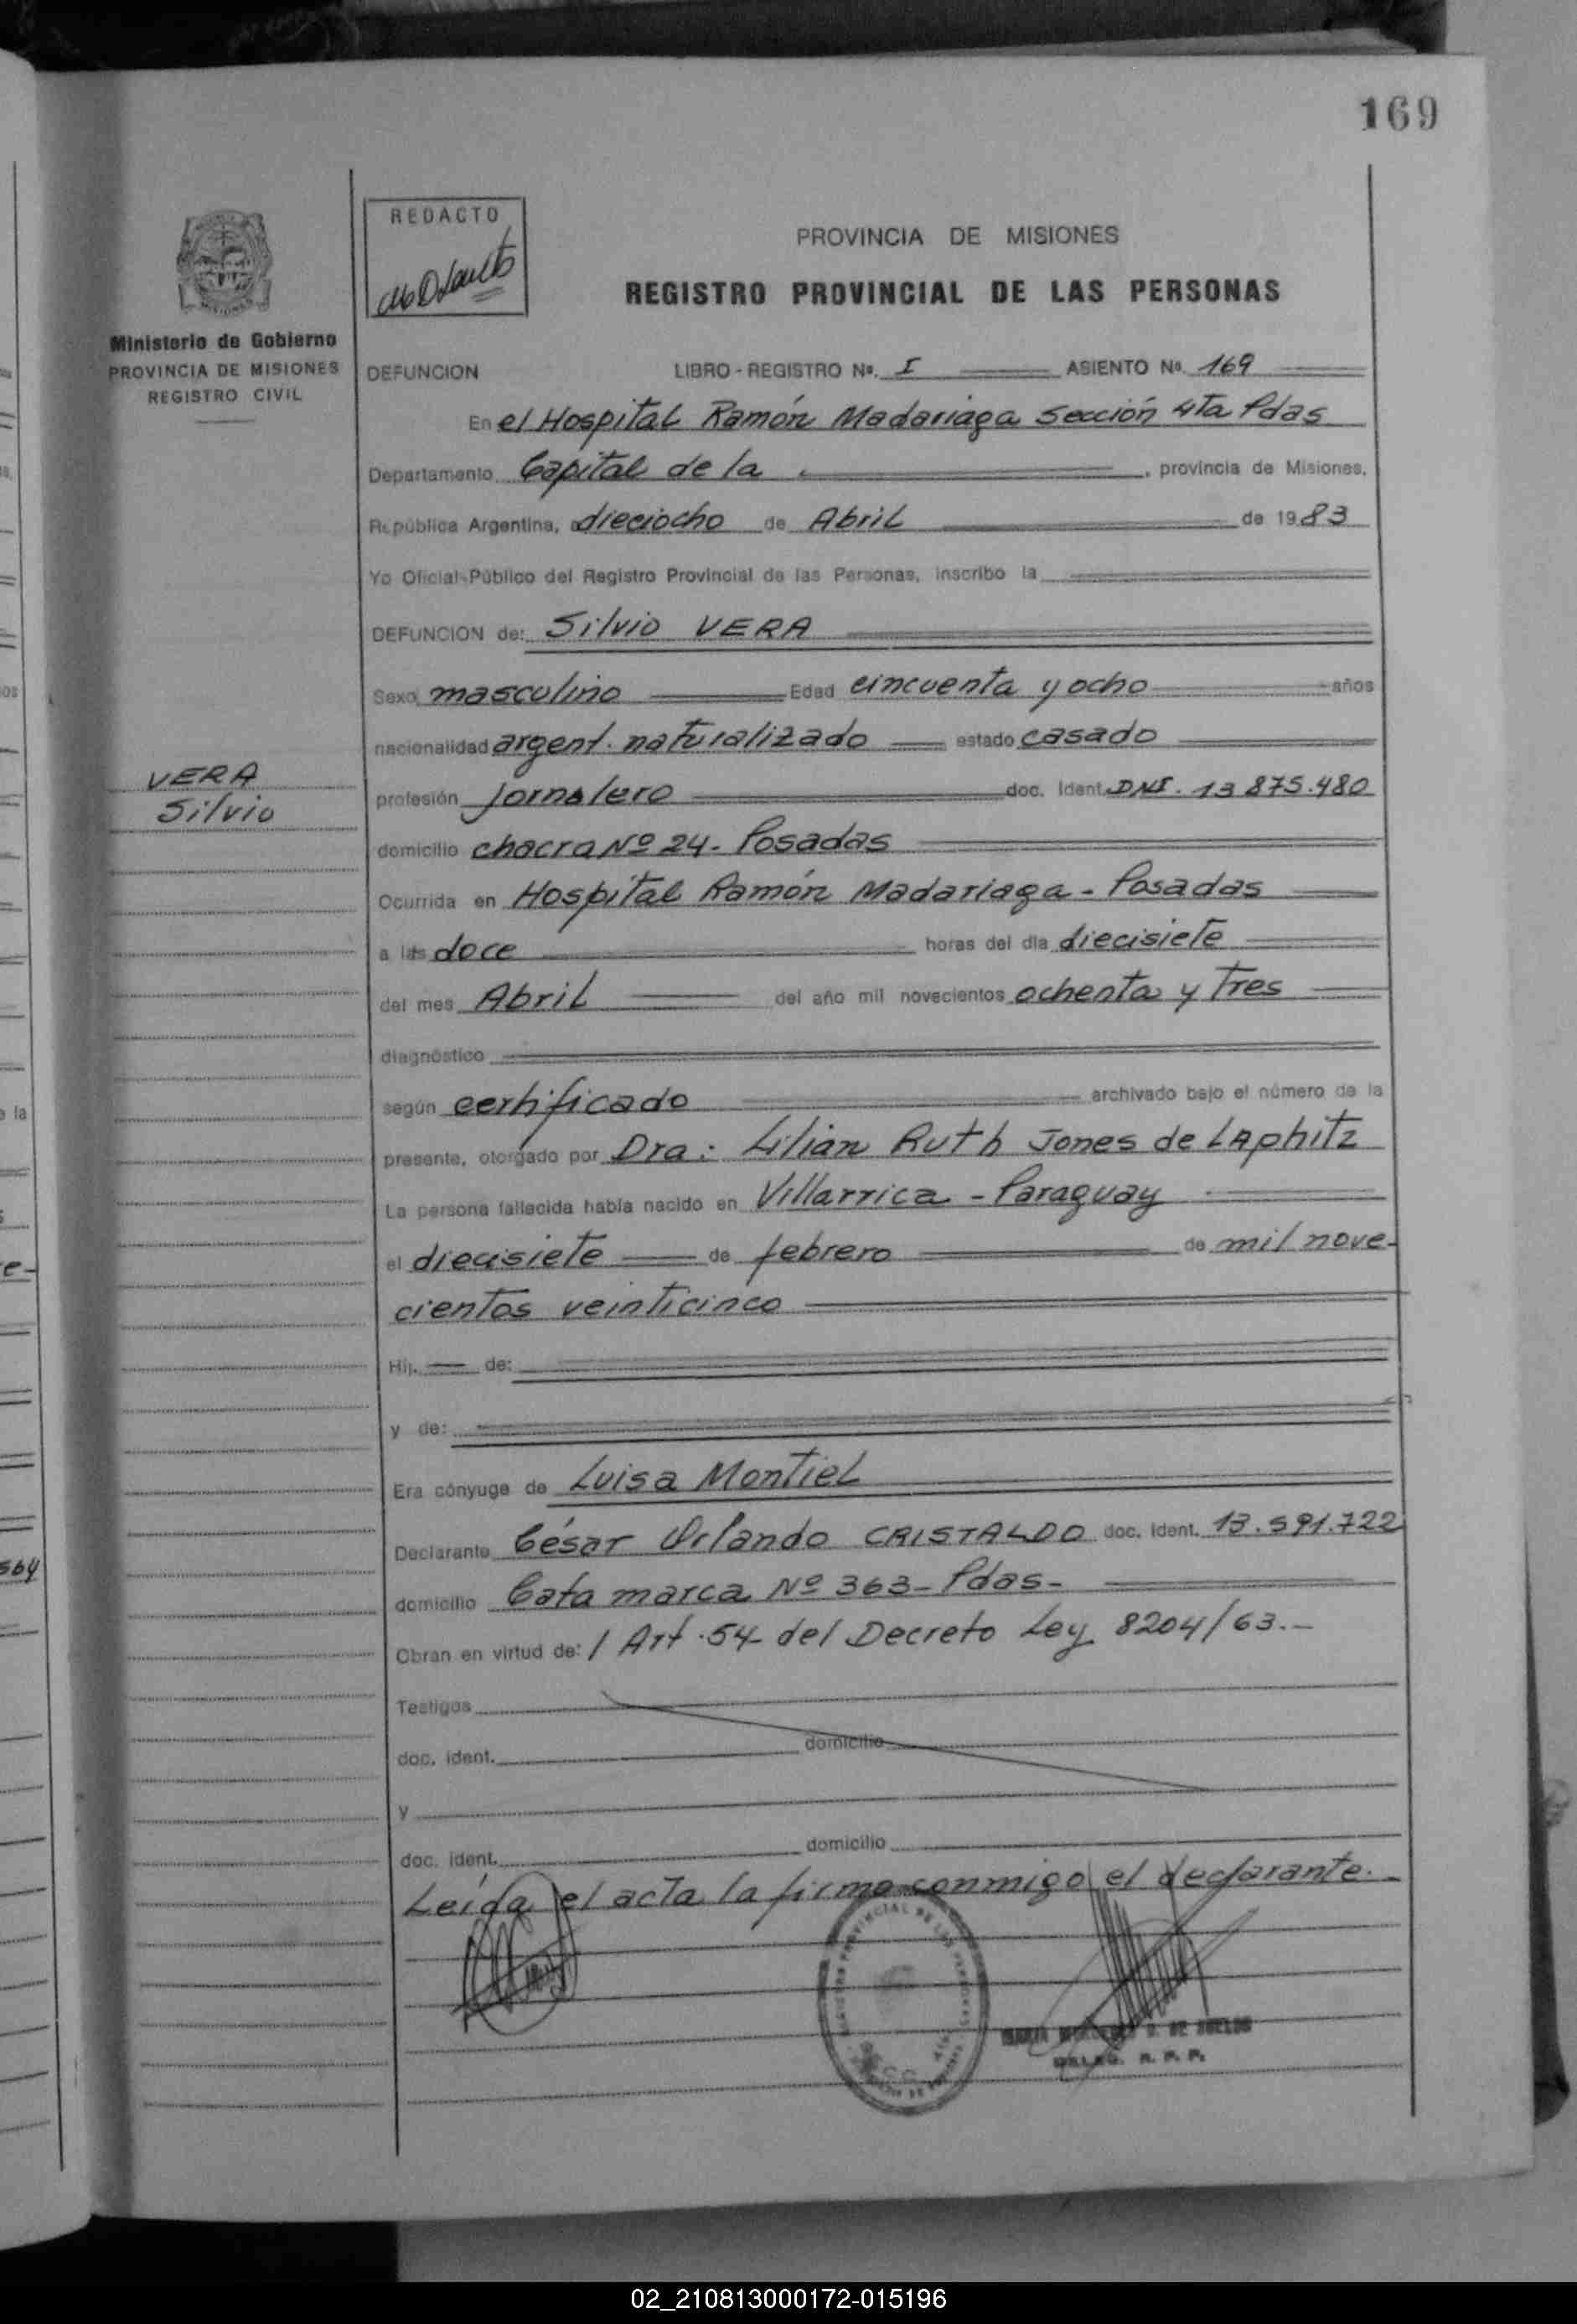 169
REDACTO
PROVINCIA DE MISIONES
REGISTRO PROVINCIAL DE LAS PERSONAS
Ministerio de Gobierno
PROVINCIA DE MISIONES
REGISTRO CIVIL
DEFUNCION LIBRO - REGISTRO Nº. I ASIENTO Nº. 169
En el Hospital Ramón Madariaga Sección 4Ta Pdas
Departamento Capital de la , provincia de Misiones,
República Argentina, a dieciocho de Abril de 1983
Yo Oficial Público del Registro Provincial de las Personas, inscribo la
DEFUNCION de: Silvio VERA
Sexo masculino Edad cincuenta y ocho años
nacionalidad argent. naturalizado estado casado
VERA
Silvio
profesión Jornalero doc. Ident. DNI. 13 875.480
domicilio chacra Nº 24 - Posadas
Ocurrida en Hospital Ramón Madariaga - Posadas
a las doce horas del día diecisiete
del mes Abril del año mil novecientos ochenta y Tres
diagnóstico
según certificado archivado bajo el número de la
presente, otorgado por Dra: Lilian Ruth Jones de LAphitz
La persona fallecida había nacido en Villarrica - Paraguay
el diecisiete de febrero de mil nove-
cientos veinticinco
Hij. de:
y de:
Era cónyuge de Luisa Montiel
Declarante César Orlando CRISTALDO doc. Ident. 13.591.722
domicilio Catamarca Nº 363 - Pdas -
Obran en virtud de: / Art. 54 del Decreto Ley 8204/63.-
Testigos
doc. ident. domicilio
y
doc. ident. domicilio
Leída el acta la firma conmigo el declarante.-
DELEG. R. P. P.
02_210813000172-015196